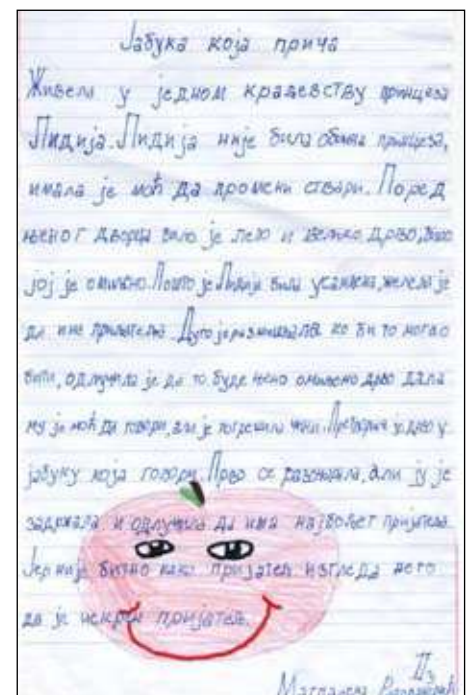 Јабука која прича
Живела у једном краљевству принцеза
Лидија. Лидија није била обична принцеза,
имала је моћ да промени ствари. Поред
њеног дворца било је лепо и велико дрво, било
јој је омиљено. Пошто је Лидија била усамљена, желела је
да има пријатеља. Дуго је размишљала ко би то могао
бити, одлучила је да то буде њено омиљено дрво дала
му је моћ да говори, али је погрешила чини. Претворила је дрво у
јабуку која говори. Прво се разочарала, али ју је
задржала и одлучила да има најбољег пријатеља.
Јер није битно како пријатељ изгледа него
да је искрен пријатељ.
II3